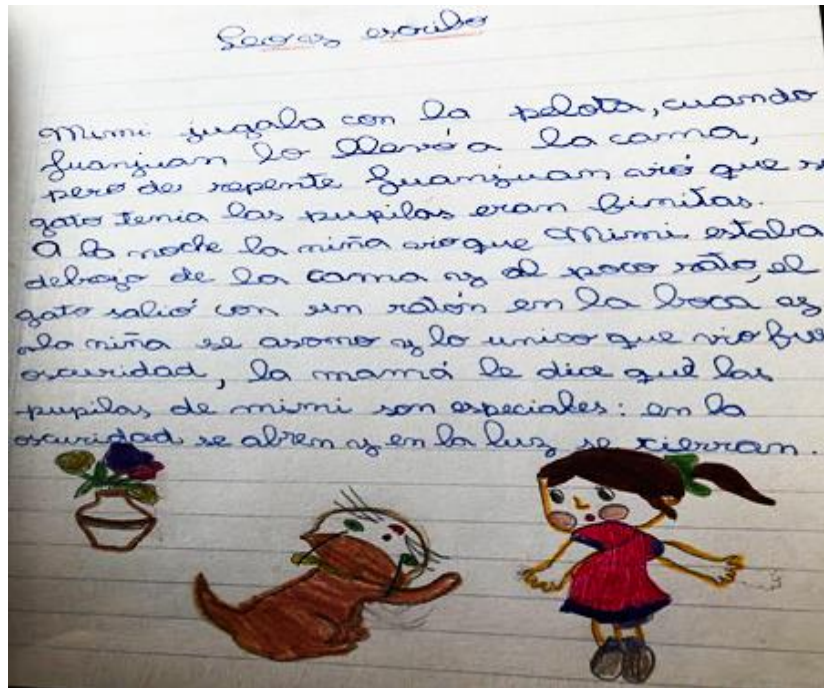 Leo y escribo
Mimi jugaba con la pelota, cuando
Juanjuan lo llevó a la cama,
pero de repente Juanjuan vió que s
gato tenia las pupilas eran finitas.
A la noche la niña vio que Mimi estaba
debajo de la cama y al poco rato, el
gato salió con un ratón en la boca y
la niña se asomo y lo unico que vio fue
oscuridad, la mamá le dice que las
pupilas de mimi son especiales: en la
oscuridad se abren y en la luz se cierran.